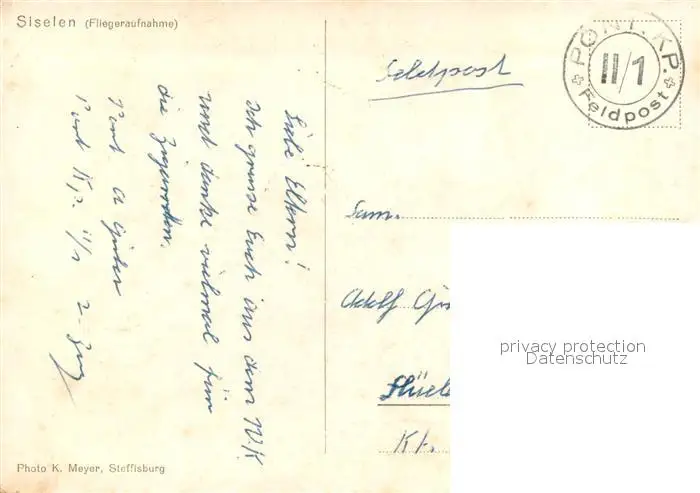 Siselen (Fliegeraufnahme)
PONT. KP.
II/1
Feldpost
Feldpost
Liebe Eltern!
Ich grüsse Euch aus dem W.K.
und danke vielmal für
die Zigaretten.
Pont
Pont Kp. II/1 2. Zug
Fam.
Adolf
Kt.
privacy protection
Datenschutz
Photo K. Meyer, Steffisburg